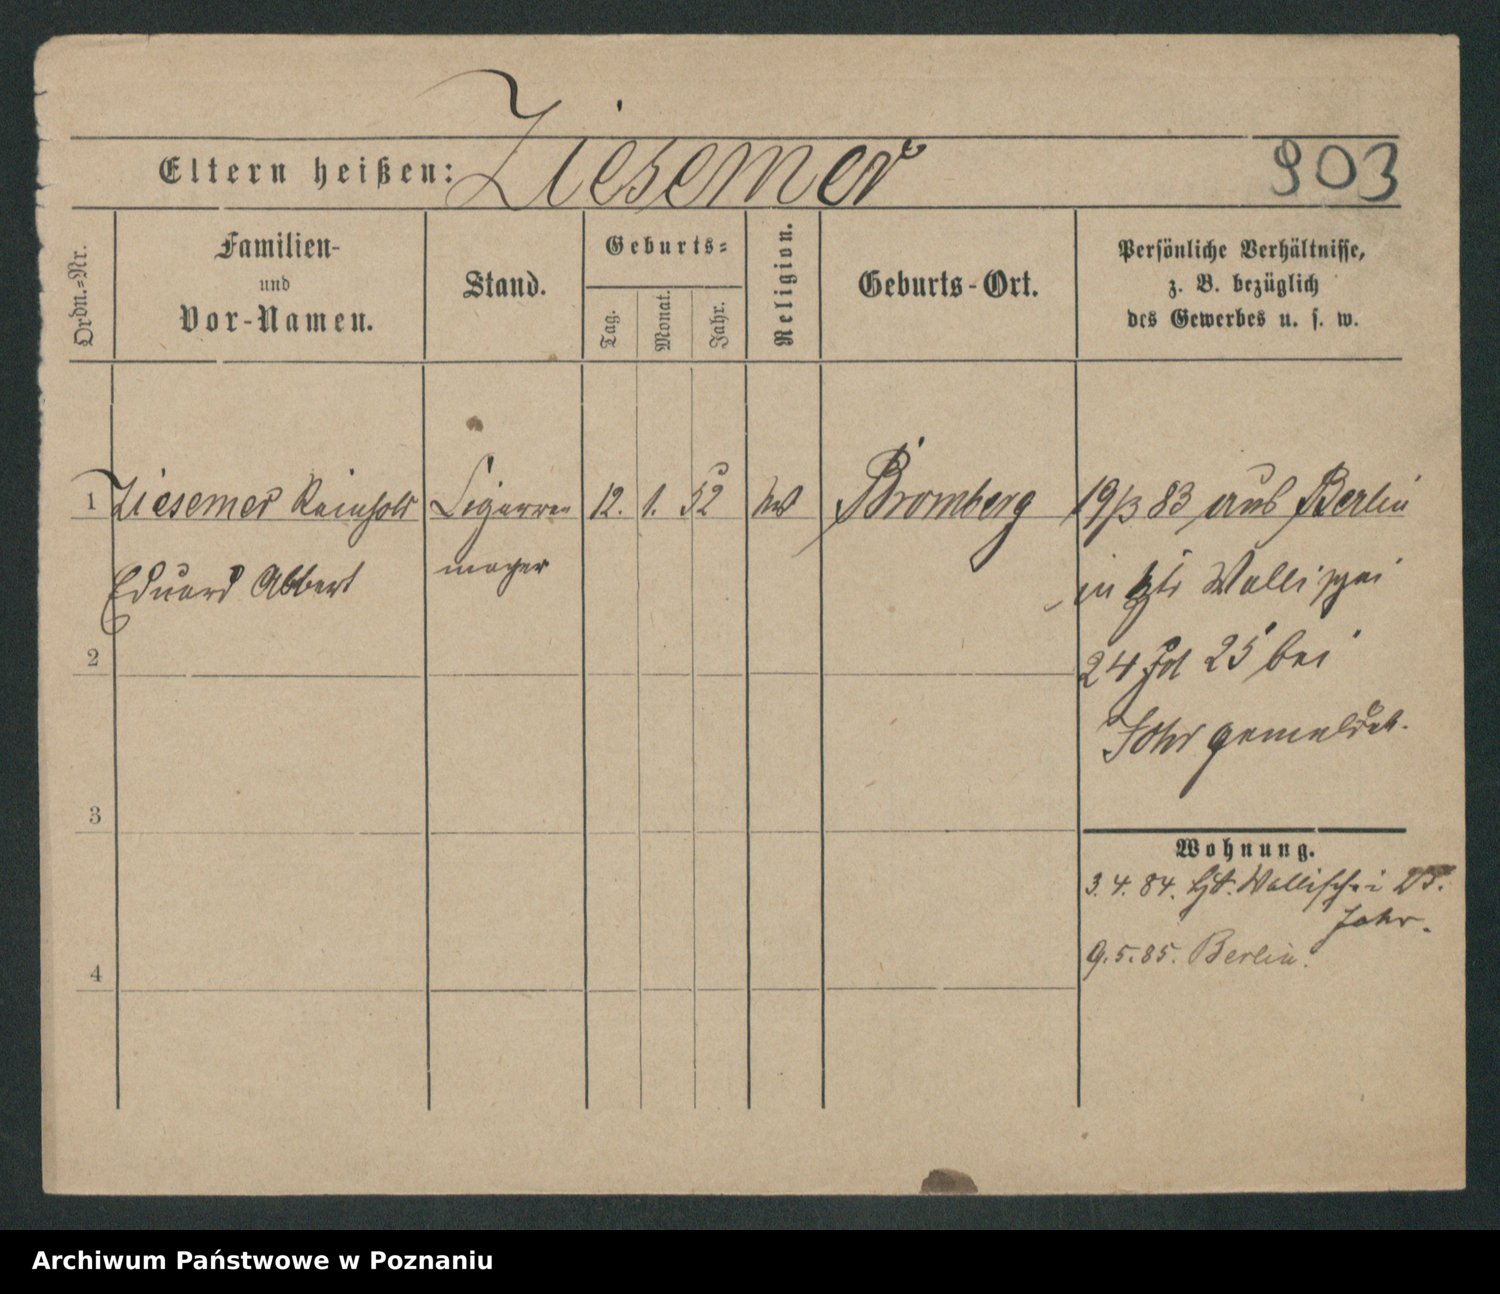 Ziesemer
Eltern heißen:
903
Ordn.=Nr.
Familien-
und
Vor-Namen.
Stand.
Geburts=
Tag.
Monat.
Jahr.
Religion.
Geburts-Ort.
Persönliche Verhältnisse,
z. B. bezüglich
des Gewerbes u. s. w.
1 Ziesemer Reinhold Cigarren 12. 1. 52 Bromberg 19/3 83 aus Berlin
Eduard Albert macher in Wallischei
2 24 25 bei
gemeldet.
3
Wohnung.
3. 4. 84. Wallischei 25.
9. 5. 85. Berlin.
4
Archiwum Państwowe w Poznaniu